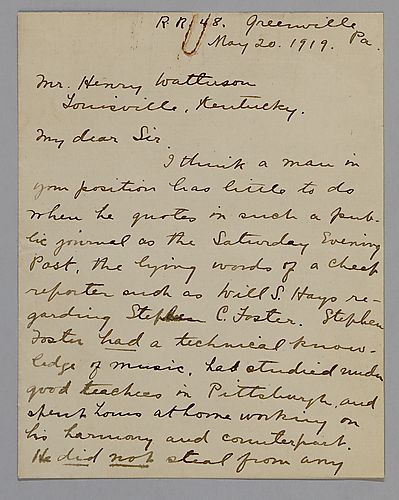 R.R. 48. Greenville,
May 20. 1919. Pa.
Mr. Henry Watterson
Louisville, Kentucky.
My dear Sir
I think a man in
your position has little to do
when he quotes in such a pub-
lic journal as the Saturday Evening
Post, the lying words of a cheap
reporter such as Will S. Hays re-
garding Stephen C. Foster. Stephen
Foster had a technical know-
ledge of music, had studied under
good teachers in Pittsburgh, and
spent hours at home working on
his harmony and counterpart.
He did not steal from any